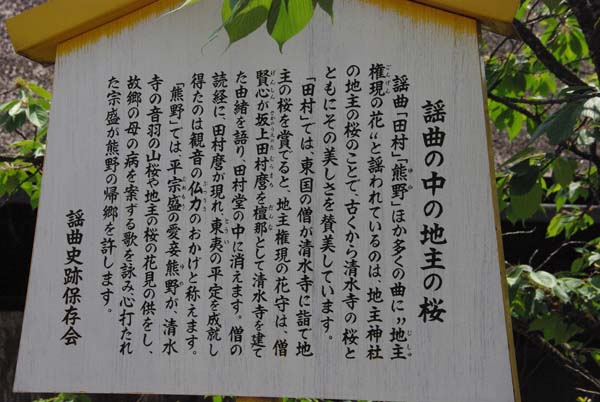 謡曲の中の地主の桜
謡曲「田村」「熊野」ほか多くの曲に〃地主
権現の花〃と謡われているのは、地主神社
の地主の桜のことで、古くから清水寺の桜と
ともにその美しさを賛美しています。
「田村」では、東国の僧が清水寺に詣で地
主の桜を賞でると、地主権現の花守は、僧
賢心が坂上田村麿を檀那として清水寺を建て
た由緒を語り、田村堂の中に消えます。僧の
読経に、田村麿が現れ、東夷の平定を成就し
得たのは観音の仏力のおかげと称えます。
「熊野」では、平宗盛の愛妾熊野が、清水
寺の音羽の山桜や地主の桜の花見の供をし、
故郷の母の病を案ずる歌を詠み、心打たれ
た宗盛が熊野の帰郷を許します。
謡曲史跡保存会